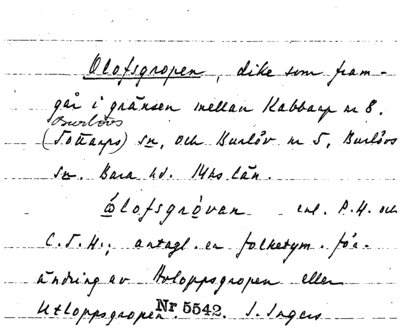 Olofsgropen, dike som fram-
går i gränsen mellan Kabbarp nr 8.
Burlövs
(Tottarps) sn, och Burlöv nr 5, Burlövs
sn. Bara hd. Mhs län.
Ólofsgrövan enl. P.H. och
C.T.H.; antagl. en folketym. för-
ändring av Avloppsgropen eller
Utloppsgropen. Nr 5542. I. Ingers